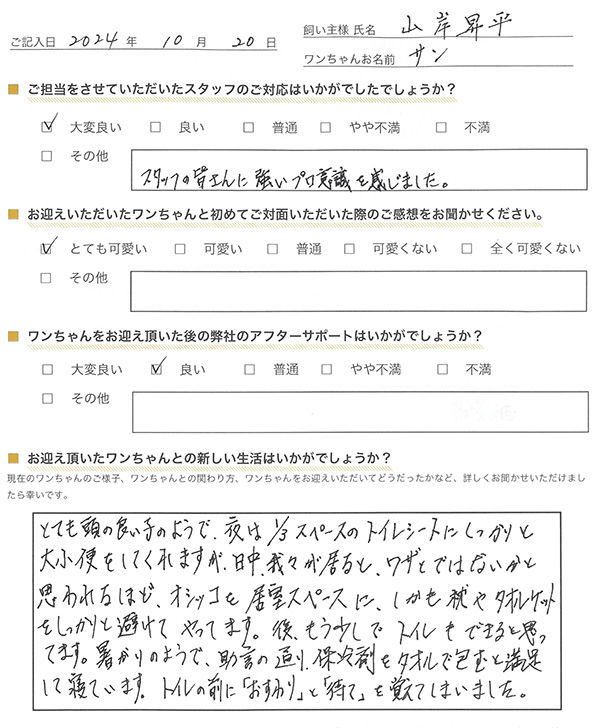 ご記入日 2024 年 10 月 20 日
飼い主様 氏名 山岸昇平
ワンちゃんお名前 サン
ご担当をさせていただいたスタッフのご対応はいかがでしたでしょうか？
☑ 大変良い □ 良い □ 普通 □ やや不満 □ 不満
□ その他 スタッフの皆さんに強いプロ意識を感じました。
お迎えいただいたワンちゃんと初めてご対面いただいた際のご感想をお聞かせください。
☑ とても可愛い □ 可愛い □ 普通 □ 可愛くない □ 全く可愛くない
□ その他
ワンちゃんをお迎え頂いた後の弊社のアフターサポートはいかがでしょうか？
□ 大変良い ☑ 良い □ 普通 □ やや不満 □ 不満
□ その他
お迎え頂いたワンちゃんとの新しい生活はいかがでしょうか？
現在のワンちゃんのご様子、ワンちゃんとの関わり方、ワンちゃんをお迎えいただいてどうだったかなど、詳しくお聞かせいただけまし
たら幸いです。
とても頭の良い子のようで、夜は1/3スペースのトイレシートにしっかりと
大小便をしてくれますが、日中、我々が居ると、ワザとではないかと
思われるほど、オシッコを居室スペースに、しかも枕やタオルケット
をしっかりと避けてやってます。後、もう少しでトイレもできると思っ
てます。暑がりのようで、助言の通り、保冷剤をタオルで包むと満足
して寝ています。トイレの前に「おすわり」と「待て」を覚えてしまいました。